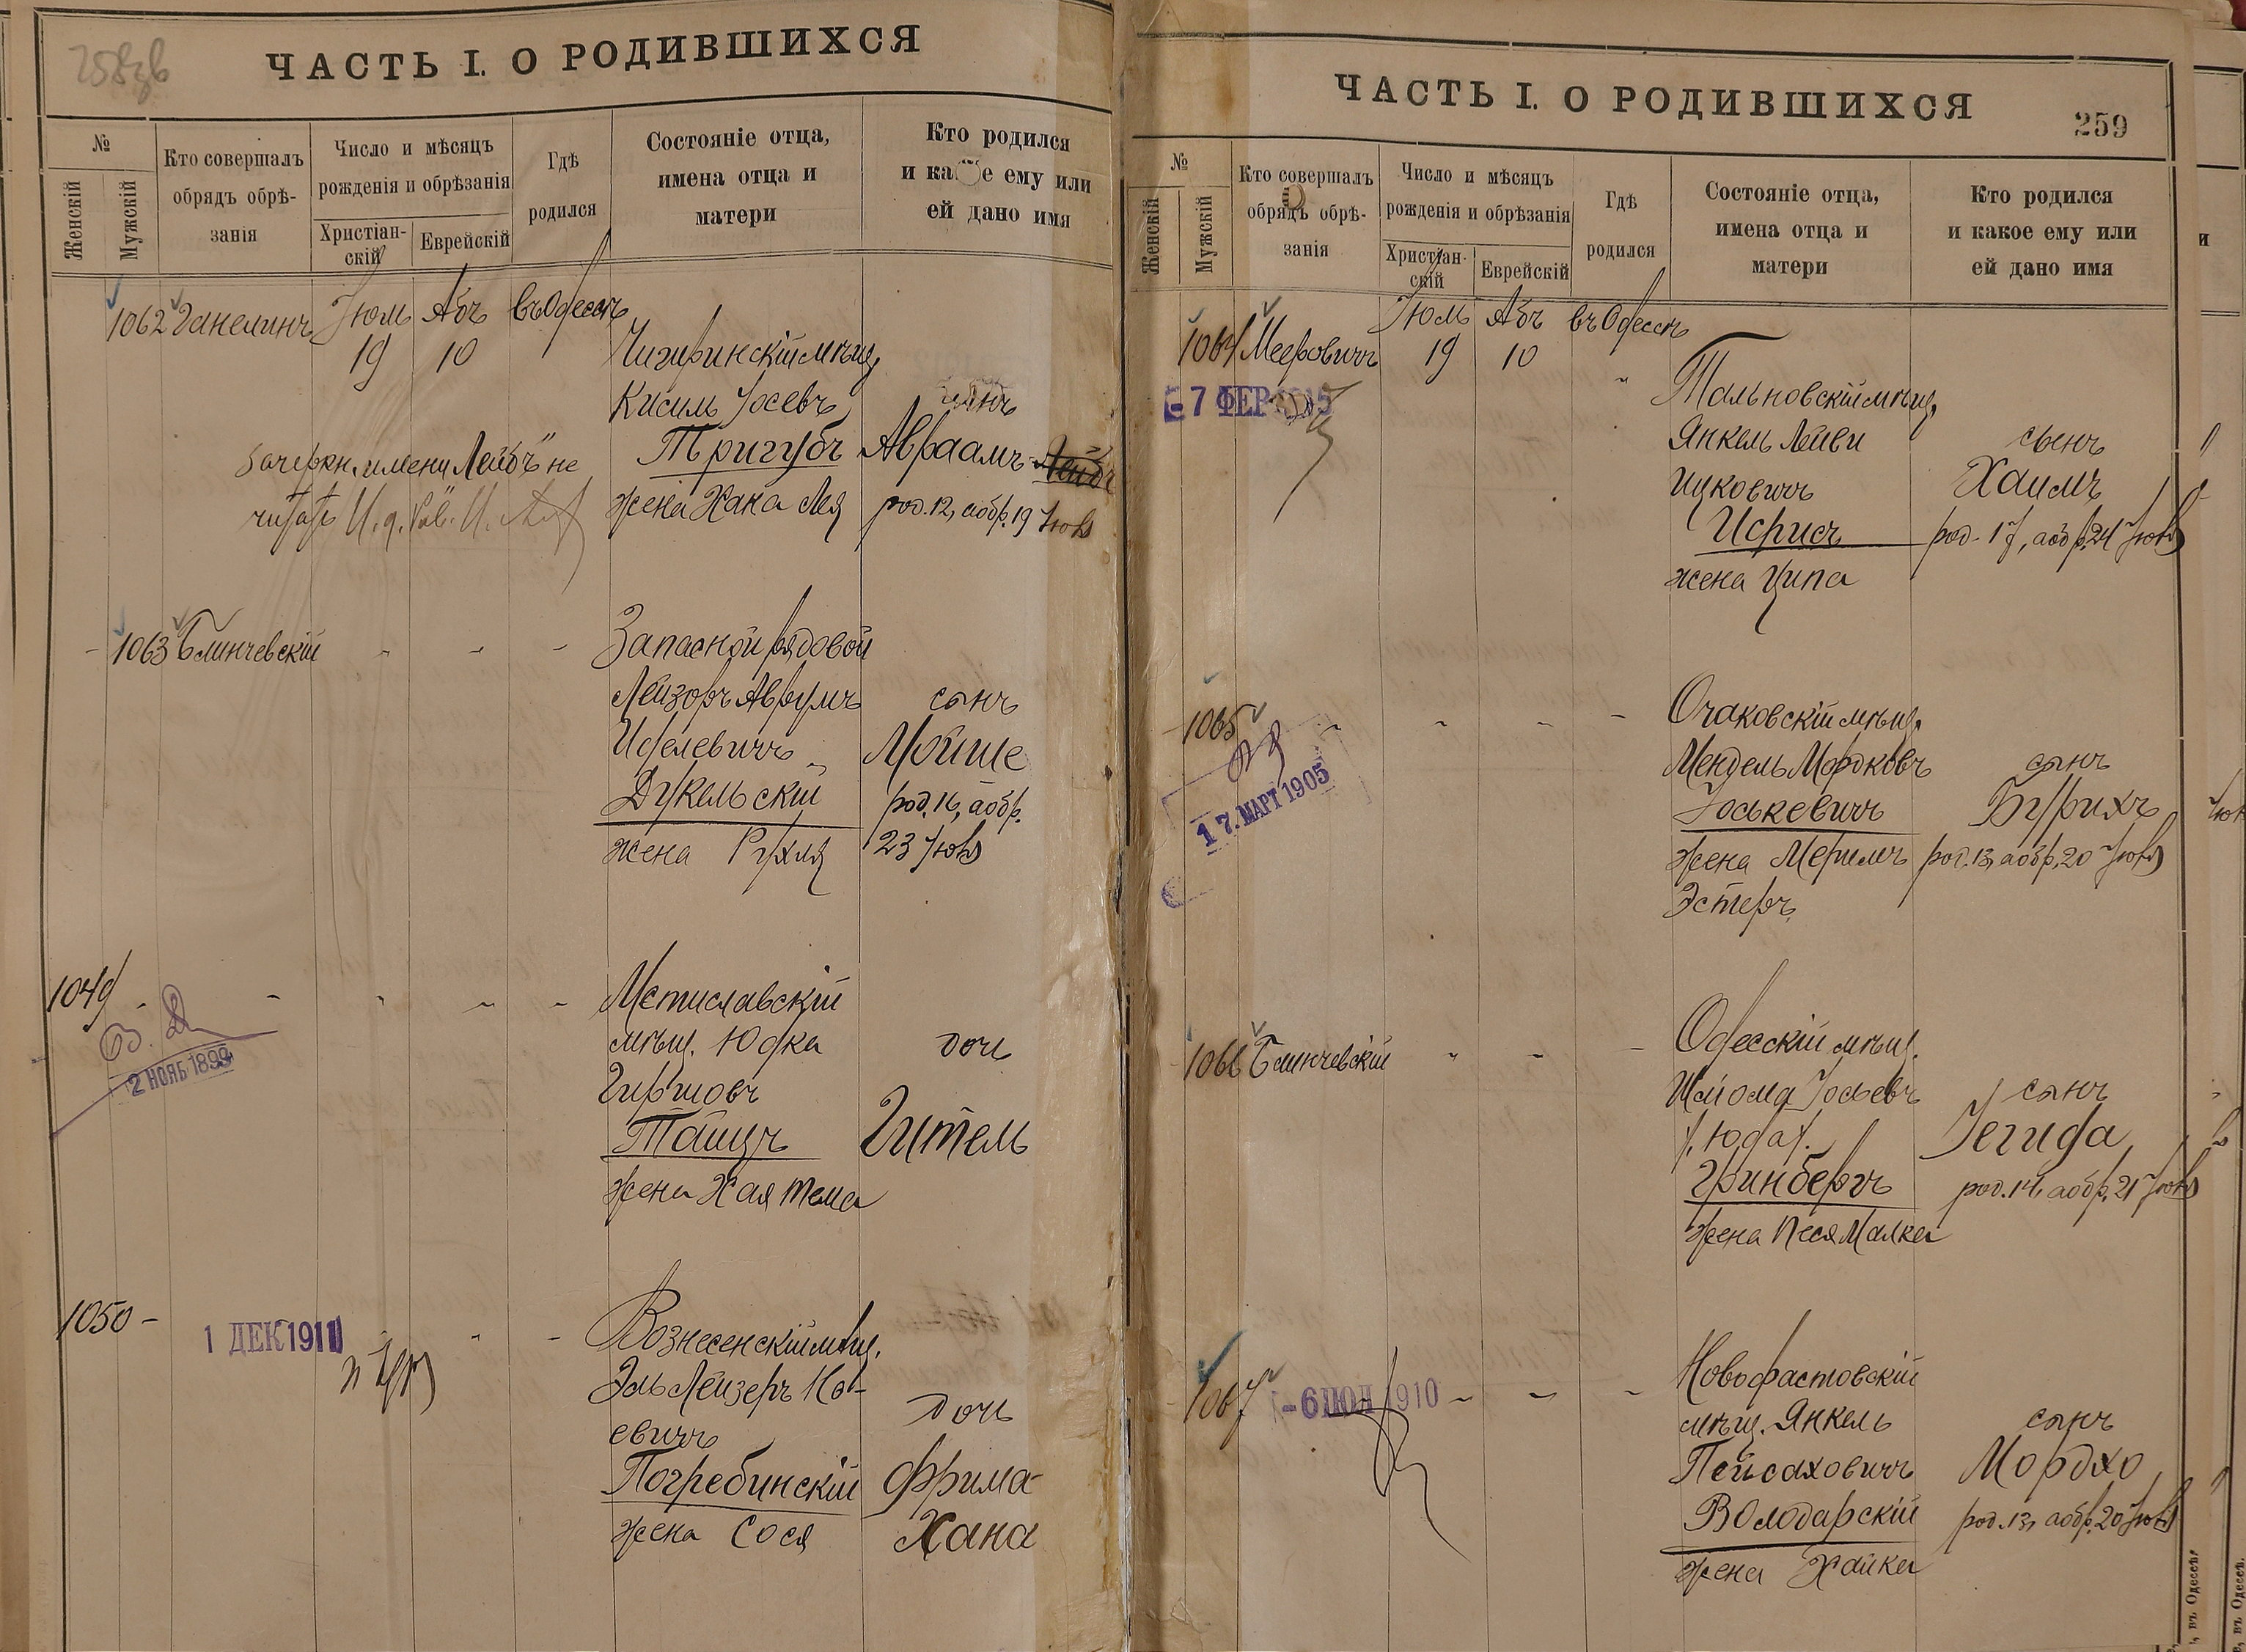 258 зв
ЧАСТЬ I. О РОДИВШИХСЯ
№
Женскій
Мужскій
Кто совершалъ
обрядъ обрѣ-
занія
Число и мѣсяцъ
рожденія и обрѣзанія
Христіан-
скій
Еврейскій
Гдѣ
родился
Состояніе отца,
имена отца и
матери
Кто родился
и ка е ему или
ей дано имя
1062 Ганелинъ Іюль Абъ въ Одессѣ
19 10
Чигиринскій мѣщ.
Кисиль Іосевъ сынъ
Тригубъ Авраамъ-Лейбъ
жена Хана Лея род. 12, а обр. 19 Іюля
Зачеркн. имени „Лейбъ" не
читать
1063 Блинчевскій
Запасной рядовой
Лейзоръ Аврумъ сынъ
Иделевичъ Мойше
Дукельскій род. 16, а обр.
жена Рухля 23 Іюля
1049
2 НОЯБ 1899
Мстиславскій
мѣщ. Юдка дочь
Гиршовъ
Тайцъ Гитель
жена Хая Тема
1050
1 ДЕК 1911
Вознесенскій мѣщ.
Эль Лейзеръ Но-
евичъ дочь
Погребинскій Фрима-
жена Сося Хана
ЧАСТЬ I. О РОДИВШИХСЯ
259
№
Женскій
Мужскій
Кто совершалъ
обрядъ обрѣ-
занія
Число и мѣсяцъ
рожденія и обрѣзанія
Христіан-
скій
Еврейскій
Гдѣ
родился
Состояніе отца,
имена отца и
матери
Кто родился
и какое ему или
ей дано имя
1064 Мееровичъ Іюль Абъ въ Одессѣ
19 10
-7 ФЕР
Тальновскій мѣщ.
Янкель Лейви сынъ
Ицковичъ Хаимъ
Исрисъ род. 17, а обр. 24 Іюля
жена Ципа
1065
17. МАРТ 1905
Очаковскій мѣщ.
Мендель Мордковъ сынъ
Іоськевичъ Бурихъ
жена Меримъ род. 13, а обр. 20 Іюля
Эстеръ
1066 Блинчевскій
Одесскій мѣщ.
Шліома Іосьевъ сынъ
Іегуда
Гринбергъ род. 14, а обр. 21 Іюля
жена Песя Малка
1067
-6 ІЮЛ 1910
Новофастовскій
мѣщ. Янкель сынъ
Пейсаховичъ Мордхо
Володарскій род. 13, а обр. 20 Іюля
жена Хайка
и
, въ Одессѣ.
, въ Одессѣ.